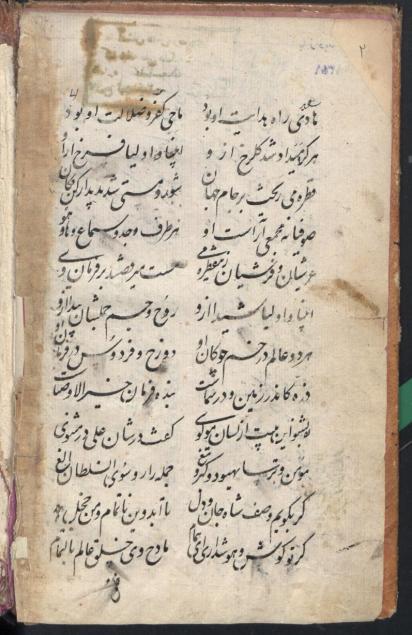 ۲
هادی راه هدایت او بود ماحی کفر و ضلالت او بود
هر که پیدا شد کلرخ از و انبیا و اولیا فرخ از و
قطره می ریخت بر جام جهان شور و مستی شد پدید
صوفیانه مجمعی آراست او هر طرف وجد و سماع و هاو هو
عرشیان و فرشیان می مست میرقصند بر فرمان وی
انبیا و اولیا شیدا از و روح و جسم جملشان پیدا از و
هر دو عالم در خم چوکان او دوزخ و فردوس در فرمان او
ذره کاندر زمین و در سماست بنده فرمان خیر الاوصیاست
تو بشنو این بیت از لسان مولوی کفت در شان علی در مثنوی
مؤمن و ترسا یهود و کبر و مغ جمله را رو سوی آن سلطان الغ
گر بگویم وصف شاه جان و دل تا ابد وین ناتمام و من خجل
گر تو کوش و هوش داری ای مادح وی خلق عالم بالتمام